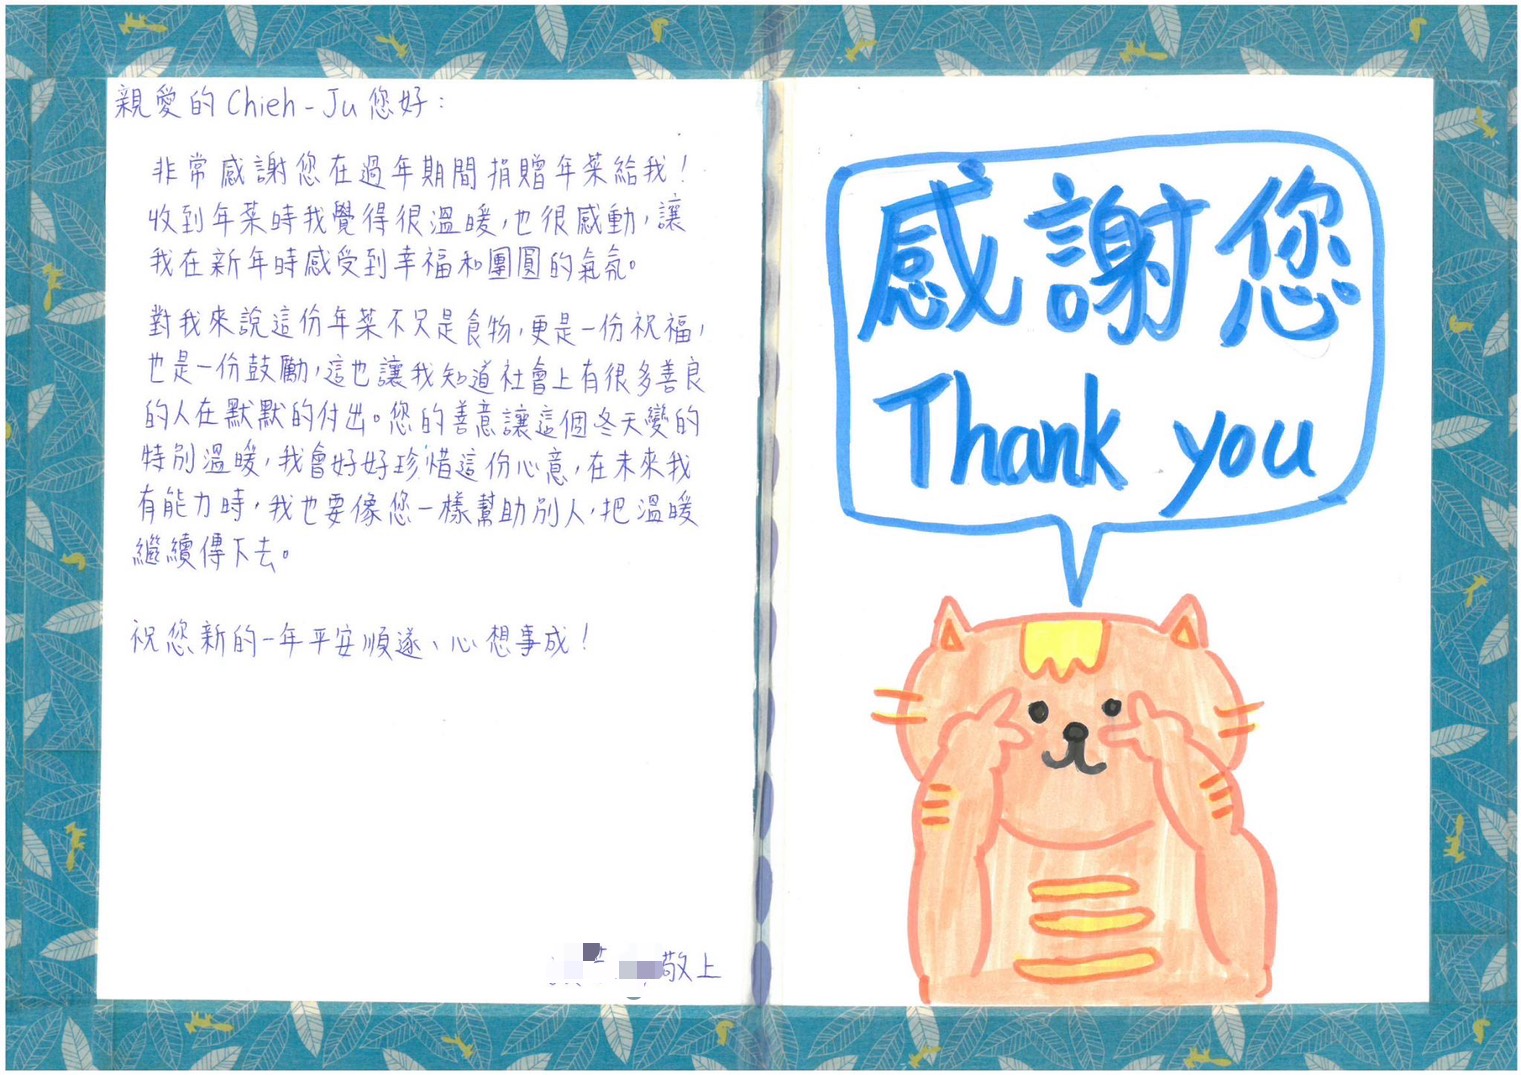 親愛的Chieh-Ju您好：
非常感謝您在過年期間捐贈年菜給我！
收到年菜時我覺得很溫暖，也很感動，讓
我在新年時感受到幸福和團圓的氣氛。
對我來說這份年菜不只是食物，更是一份祝福，
也是一份鼓勵，這也讓我知道社會上有很多善良
的人在默默的付出。您的善意讓這個冬天變的
特別溫暖，我會好好珍惜這份心意，在未來我
有能力時，我也要像您一樣幫助別人，把溫暖
繼續傳下去。
祝您新的一年平安順遂、心想事成！
敬上
感謝您
Thank you